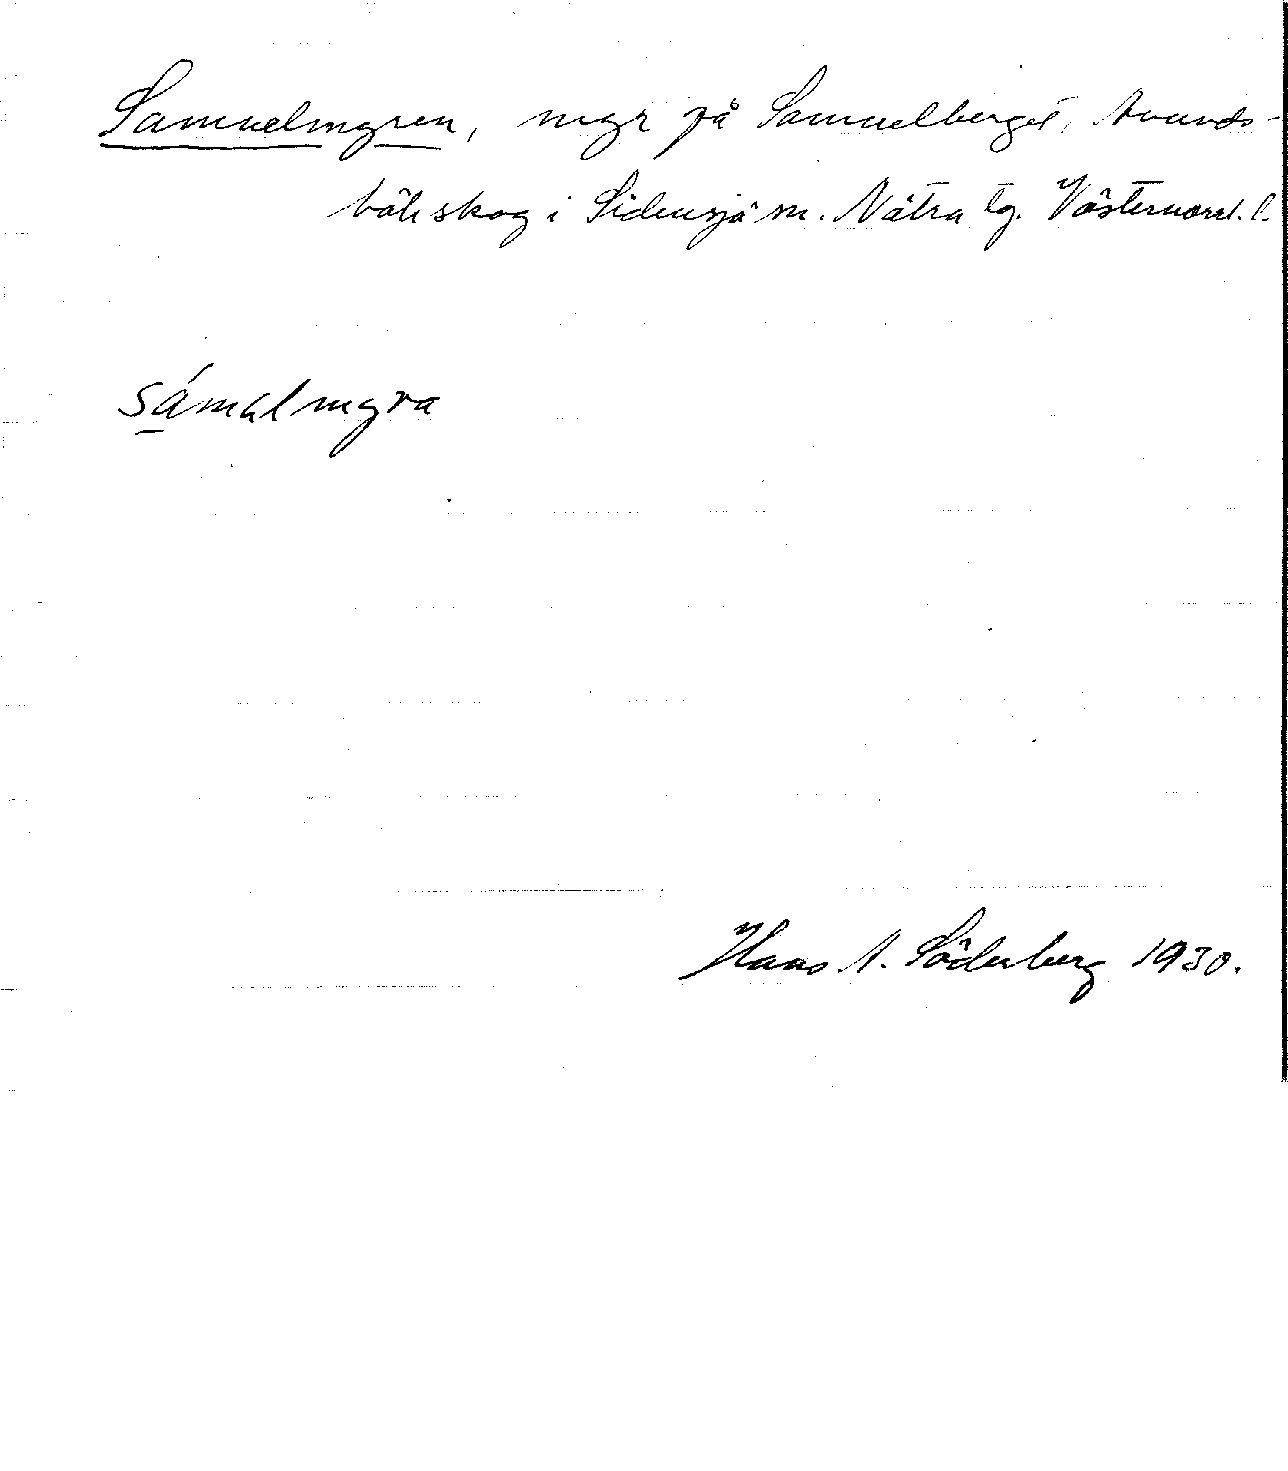 Samuelmyren, myr på Samuelberget, Avunds-
bäck skog i Sidensjö sn. Nätra tg. Västernorrl. l.
sámalmyra
Hans A. Söderberg 1930.